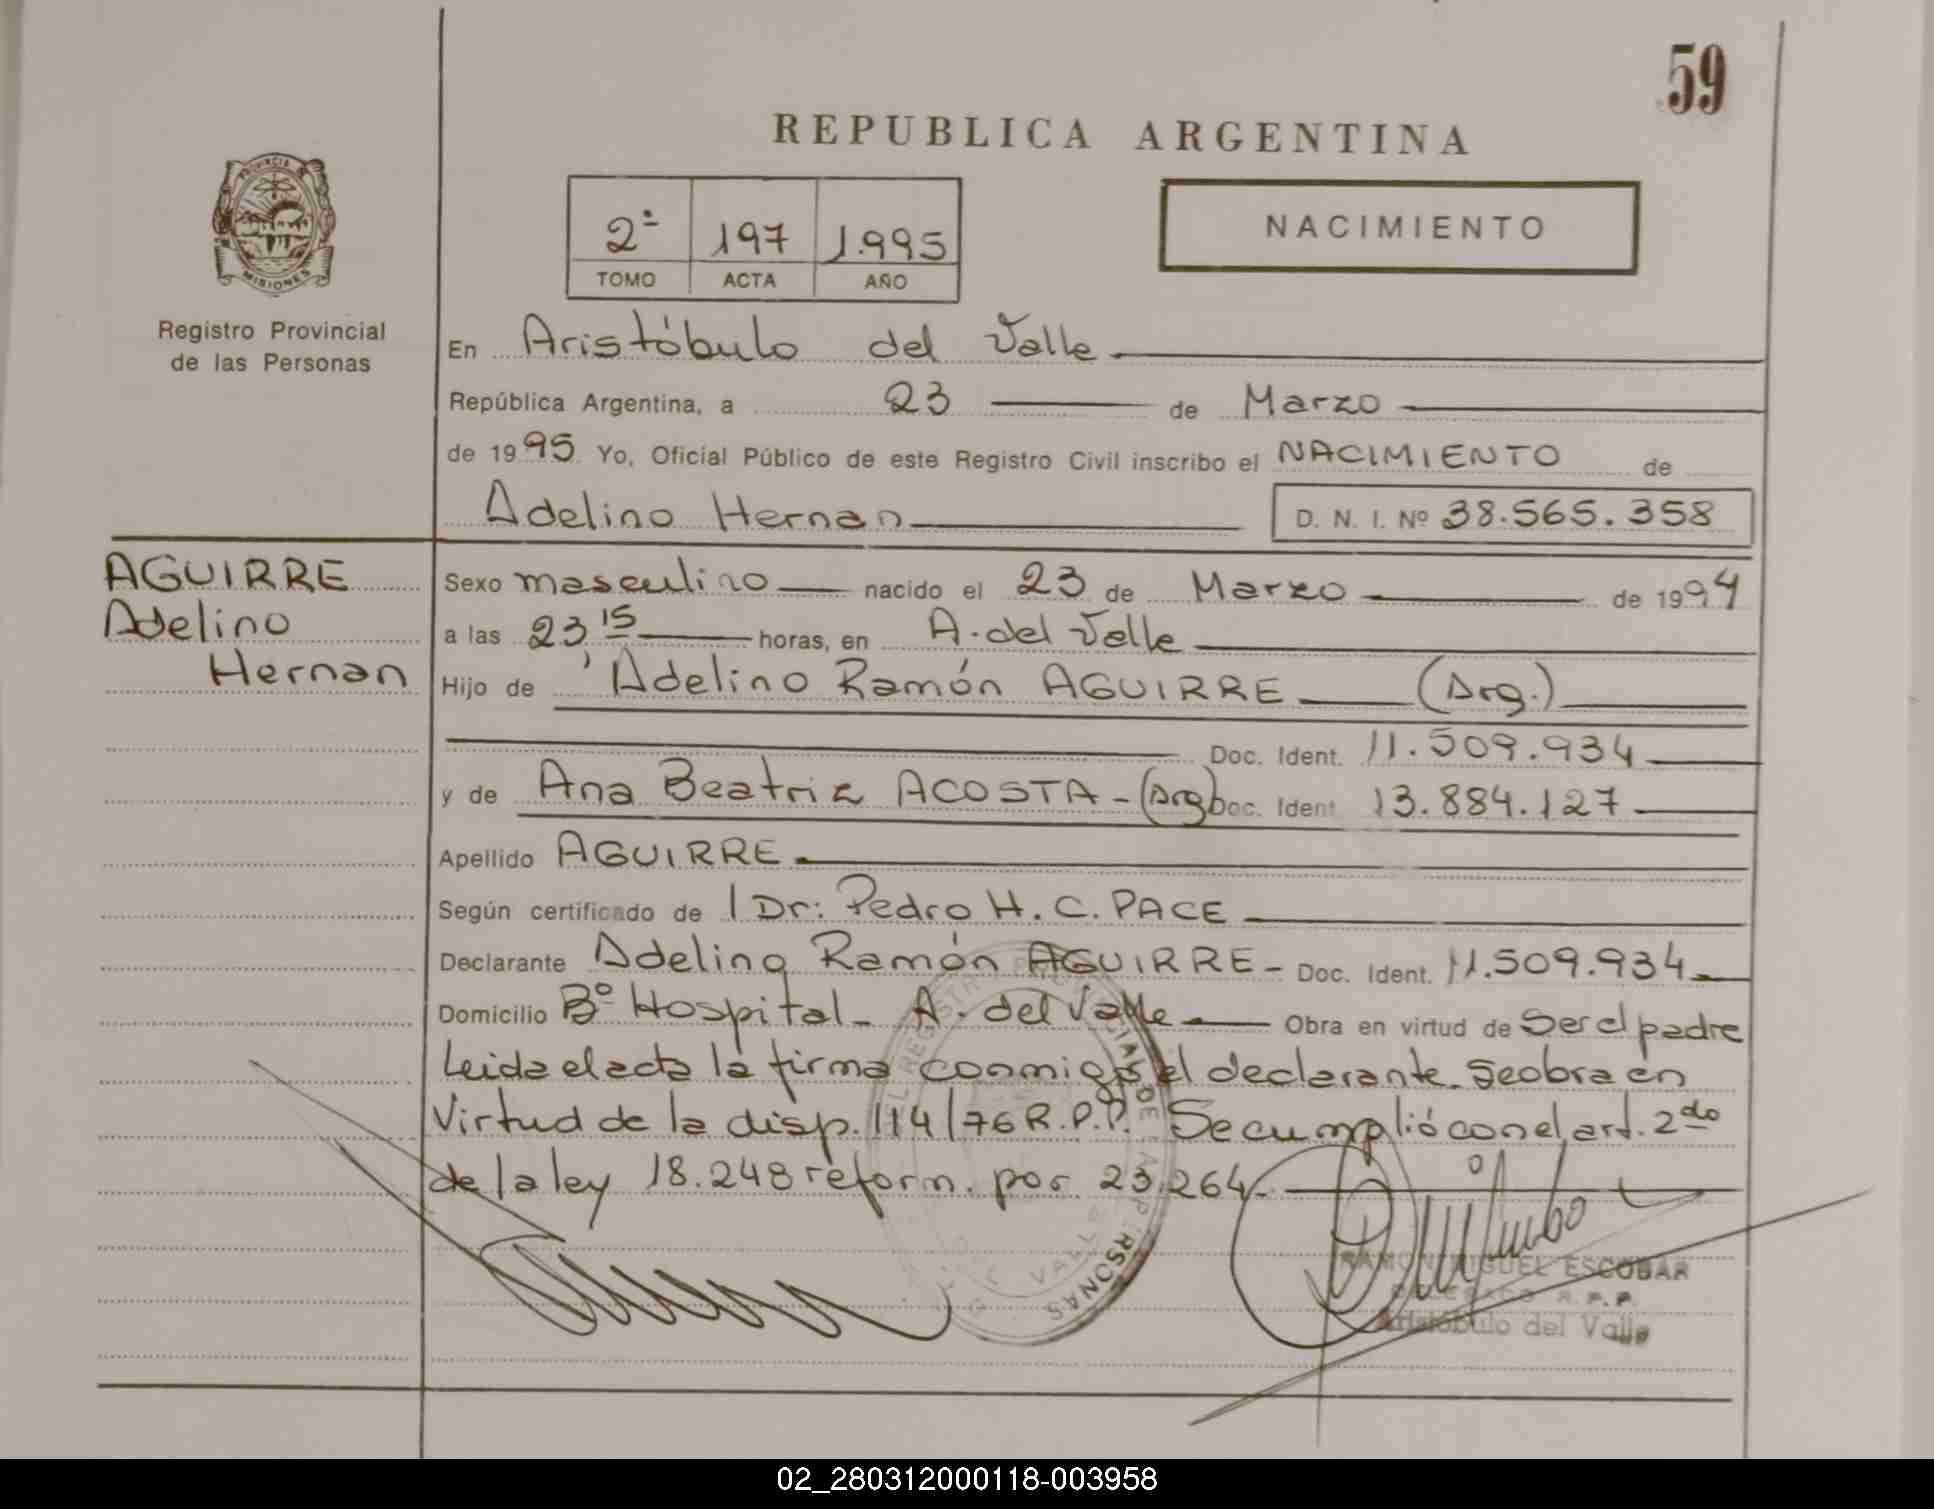 59
REPUBLICA ARGENTINA
PROVINCIA DE
MISIONES
Registro Provincial
de las Personas
2º 197 1.995
TOMO ACTA AÑO
NACIMIENTO
En Aristóbulo del Valle
República Argentina, a 23 de Marzo
de 1995 Yo, Oficial Público de este Registro Civil inscribo el NACIMIENTO de
Adelino Hernan D. N. I. Nº 38.565.358
AGUIRRE
Adelino
Hernan
Sexo masculino nacido el 23 de Marzo de 1994
a las 23 15 horas, en A. del Valle
Hijo de Adelino Ramón AGUIRRE (Arg.)
Doc. Ident. 11.509.934
y de Ana Beatriz ACOSTA - (Arg) Doc. Ident. 13.884.127
Apellido AGUIRRE
Según certificado de Dr: Pedro H. C. PACE
Declarante Adelino Ramón AGUIRRE - Doc. Ident. 11.509.934
Domicilio Bº Hospital - A. del Valle Obra en virtud de Ser el padre
Leida el acta la firma conmigo el declarante. Se obra en
Virtud de la disp. 114/76 R.P.P. Se cumplió con el art. 2do
de la ley 18.248 reform. por 23.264.
RAMON MIGUEL ESCOBAR
DELEGADO R.P.P.
Aristóbulo del Valle
02_280312000118-003958